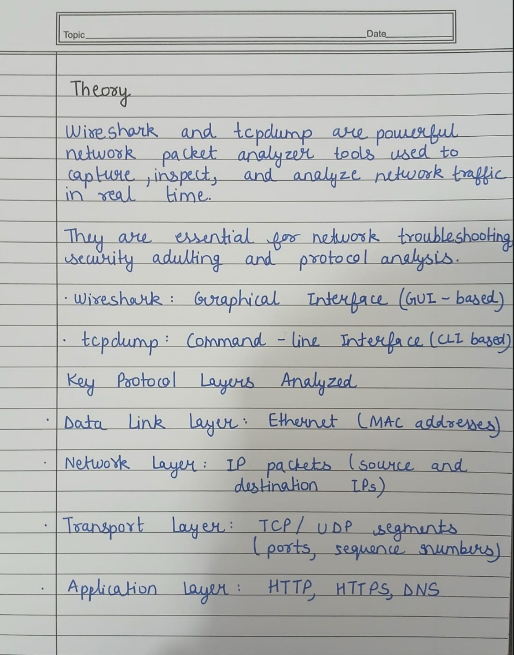 Topic Date
Theory
Wireshark and tcpdump are powerful
network packet analyzer tools used to
capture, inspect, and analyze network traffic
in real time.
They are essential for network troubleshooting
security adulting and protocol analysis.
· Wireshark : Graphical Interface (GUI - based)
· tcpdump : Command - line Interface (CLI based)
Key Protocol Layers Analyzed
· Data Link Layer : Ethernet (MAC addresses)
· Network Layer : IP packets (source and
destination IPs)
· Transport Layer : TCP/ UDP segments
(ports, sequence numbers)
· Application Layer : HTTP, HTTPS, DNS